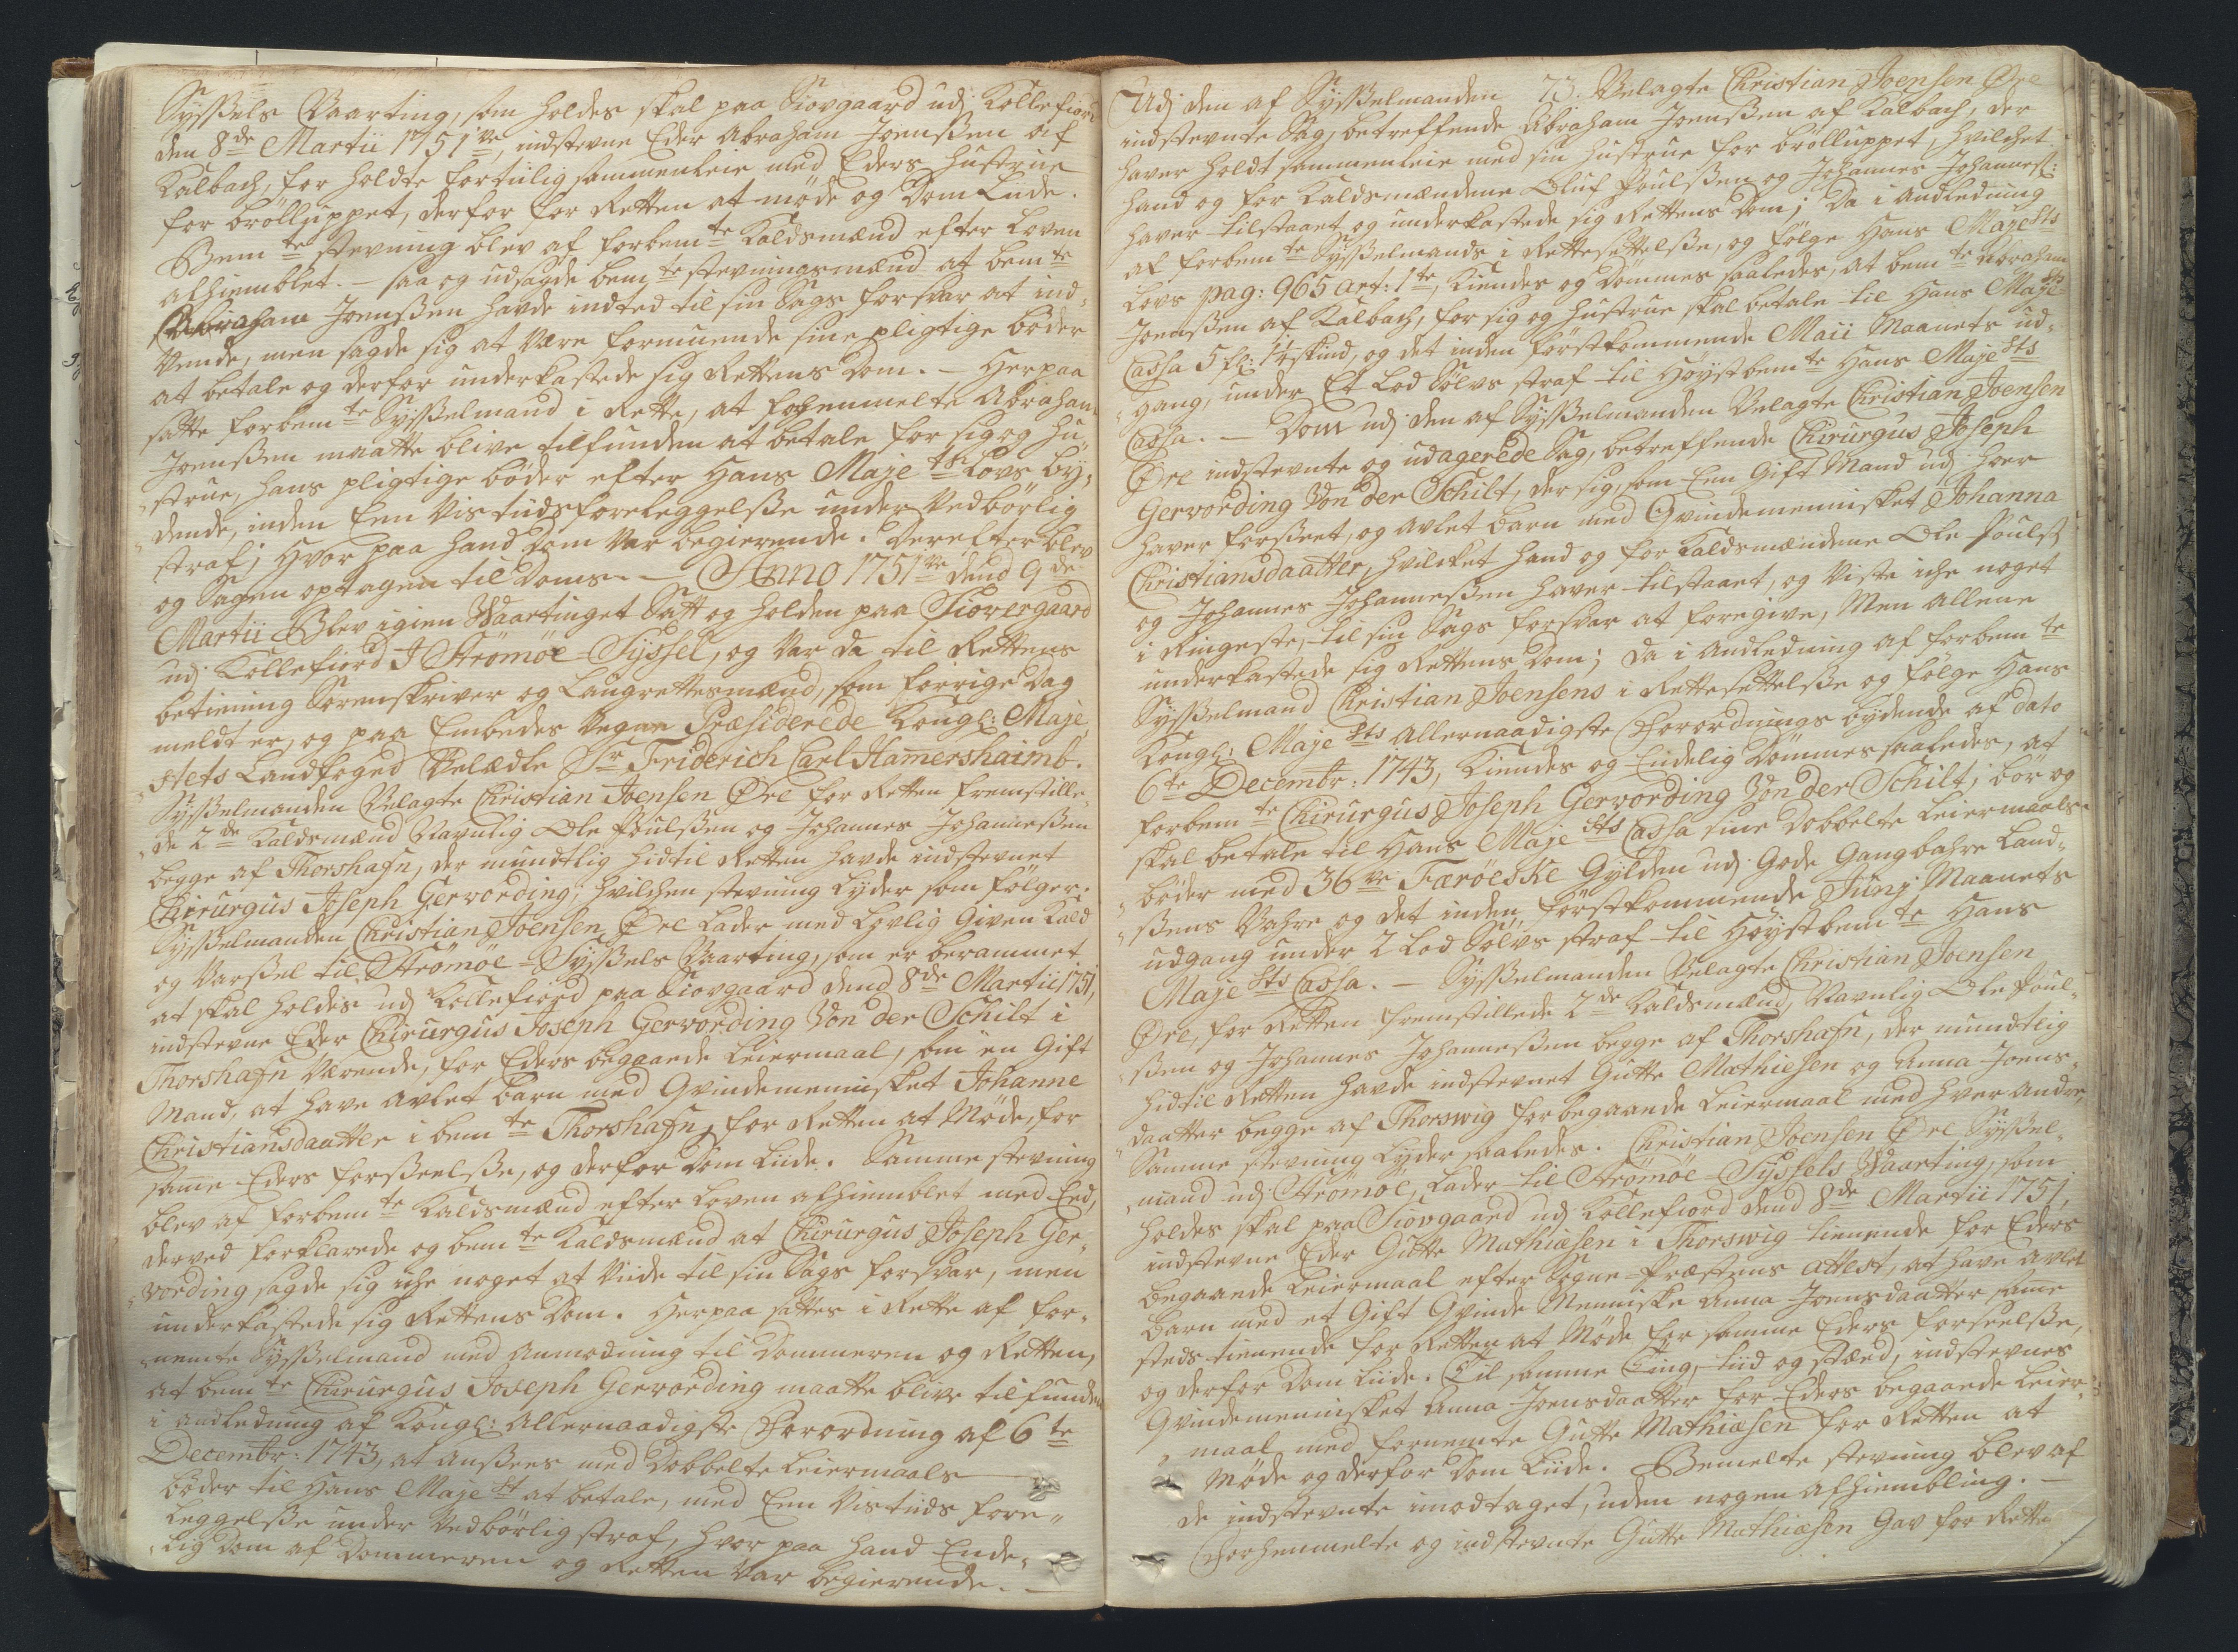 Sysßels Vaarting, som holdes skal paa Siovgaard udj Kollefiord
den 8de Martii 1751ve, indstevne Eder Abraham Joensßen af
Kalbach, for holdte fortiilig sammenleie med Eders Hustrue
for brölluppet, derfor for Retten at möde og Dom Liide.
Bemte Stevning blev af forbemte Kaldsmænd efter Loven
afhiemblet. – saa og udsagde bemte stevningsmænd at bemte
Abraham Joensßen havde indted til sin Sags forsvar at ind-
vende, men sagde sig at være formuende sine pligtige böder
at betale og derfor underkastede sig Rettens Dom. – Herpaa
satte forbemte Sysßelmand i Rette, at forhenmelte Abraham
Joensßen maatte blive tilfunden at betale for sig og Hu-
strue, hans pligtige böder efter Hans Majets Lovs by-
dende, inden Een Vis tiidsforeleggelsße under Vedbörlig
straf; Hvor paa hand Dom var begierende. Derefter blev
og Sagen optagen til Doms. – Anno 1751ve dend 9de
Martii Blev igien Waartinget Satt og holden paa Siovergaard
udj Kollefiord I Strömöe-Syssel, og var da til Rettens
betiening Sorenskriver og Laugrettesmænd, som forrige Dag
meldt er, og paa Embedes vegne Præsiderede Kongl: Maje-
stets Landfoged Velædle Sr Friderich Carl Hamershaimb.
Sysßelmanden Velagte Christian Joensen Öre for Retten fremstille-
de 2de Kaldsmænd Navnlig Ole Poulsßen og Johannes Johannesßen
begge af Thorshafn, der mundtlig hidtil Retten havde indstevnet
Chirurgus Joseph Gervording; hvilchen stevning Lyder som fölger:
Sysßelmanden Christian Joensen Öre Lader med Lovlig Given Kald
og Varsßel til Strömöe-Sysßels Vaarting, som er berammet
at skal holdes udj Kollefiord paa Siovgaard dend 8de Martii 1751,
indstevne Eder Chirurgus Joseph Gervording Von der Schilt i
Thorshafn Værende, for Eders begaaede Leiermaal, som en Gift
Mand, at have avlet Barn med Qvindemennisket Johanne
Christiansdaatter i bemte Thorshafn, for Retten at Möde, for
same Eders forsßeelsße, og derfor Dom Liide. Samme stevning
blev af forbemte Kaldsmænd efter Loven afhiemblet med Eed,
derved forklarede og bemte Kaldsmænd at Chirurgus Joseph Ger-
vording sagde sig iche noget at viide til sin Sags forsvar, men
underkastede sig Rettens Dom. Herpaa sattes i Rette af for-
nemte Sysßelmand med Anmodning til Dommeren og Retten,
at bemte Chirurgus Joseph Gervording maatte blive tilfunden
i Andledning af Kongl: Allernaadigste Forordning af 6te
Decembr: 1743, at ansßees med Dobbelte Leiermaals
böder til Hans Majest at betale, med Een Vis tiids fore-
leggelsße under Vedbörlig straf, hvor paa hand Ende-
lig Dom af Dommeren og Retten var begierende. –
73.
Udj den af Sysßelmanden Velagte Christian Joensen Öre
indstevnte Sag, betreffende Abraham Joensßen af Kalbach, der
haver holdt sammenleie med sin Hustrue for brölluppet, hvilchet
hand og for Kaldsmændene Oluf Poulsßen og Johannes Johannesß:
haver tilstaaet og underkastede sig Rettens Dom; Da i Andledning
af forbemte Sysßelmands i Rettesettelsße, og fölge Hans Majests
Lovs pag: 965 art: 1te, Kiendes og Dömmes saaledes, at bemte Abraham
Joensßen af Kalbach, for sig og Hustrue skal betale til Hans Majests
Cassa 5 fl: 14 skind, og det inden förstkommende Maii Maanets ud-
gang, under Et Lod Sölvs straf til Höystbemte Hans Majests
Cassa. – Dom udj den af Sysßelmanden Velagte Christian Joensen
Öre indstevnte og udagerede Sag, betreffende Chirurgus Joseph
Gervording Von der Schilt, der sig, som Een Gift Mand udj Hoer
haver forsßeet, og avlet Barn med Qvindemennisket Johanna
Christiansdaatter, hvilcket hand og for Kaldsmændene Ole Poulsß
og Johannes Johannesßen haver tilstaaet, og Viste iche noget
i Ringeste, til sin Sags forsvar at foregive, Men allene
underkastede sig Rettens Dom; Da i Andledning af forbemte
Sysßelmand Christian Joensens i Rettesettelsße og fölge Hans
Kongl: Majests Allernaadigste Forordnings bydende af dato
6te Decembr: 1743, Kiendes og Endelig Dömmes saaledes, at
forbemte Chirurgus Joseph Gervording Von der Schilt, bör og
skal betale til Hans Majests Cassa sine Dobbelte Leiermaals
böder med 36ve Færöeske Gylden udj Gode Gangbahre Land-
sßens Vahre og det inden förstkommende Junj Maanets
udgang under 2 Lod Sölvs straf til Höystbemte Hans
Majests Cassa. – Sysßelmanden Velagte Christian Joensen
Öre, for Retten fremstillede 2de Kaldsmænd, Navnlig Ole Poul-
sßen og Johannes Johannesßen begge af Thorshafn, der mundtlig
hidtil Retten havde indstevnet Gutte Mathiesen og Anna Joens-
daatter begge af Thorswig for begaaede Leiermaal med hver andre,
Samme stevning Lyder saaledes. Christian Joensen Öre Sysßel-
mand udj Strömöe, Lader til Strömöe-Syssels Waarting, som
holdes skal paa Siovgaard udj Kollefiord dend 8de Martii 1751,
indstevne Eder Gutte Mathiæsen i Thorswig tienende for Eders
begaaede Leiermaal efter Sogne-Præstens Attest, at have avlet
Barn med et Gift Qvinde Menniske Anna Joensdaatter same
steds tienende for Retten at Möde for samme Eders forseelsße,
og derfor Dom Liide. Til samme Ting, tiid og stæd, indstevnes
Qvindemennisket Anna Joensdaatter for Eders begaaede Leier-
maal med fornemte Gutte Mathiæsen for Retten at
Möde og derfor Dom Liide. Bemelte stevning blev af
de indstevnte imodtaget, uden nogen afhiembling. –
Forhenmelte og indstevnte Gutte Mathiæsen Gav for Rette